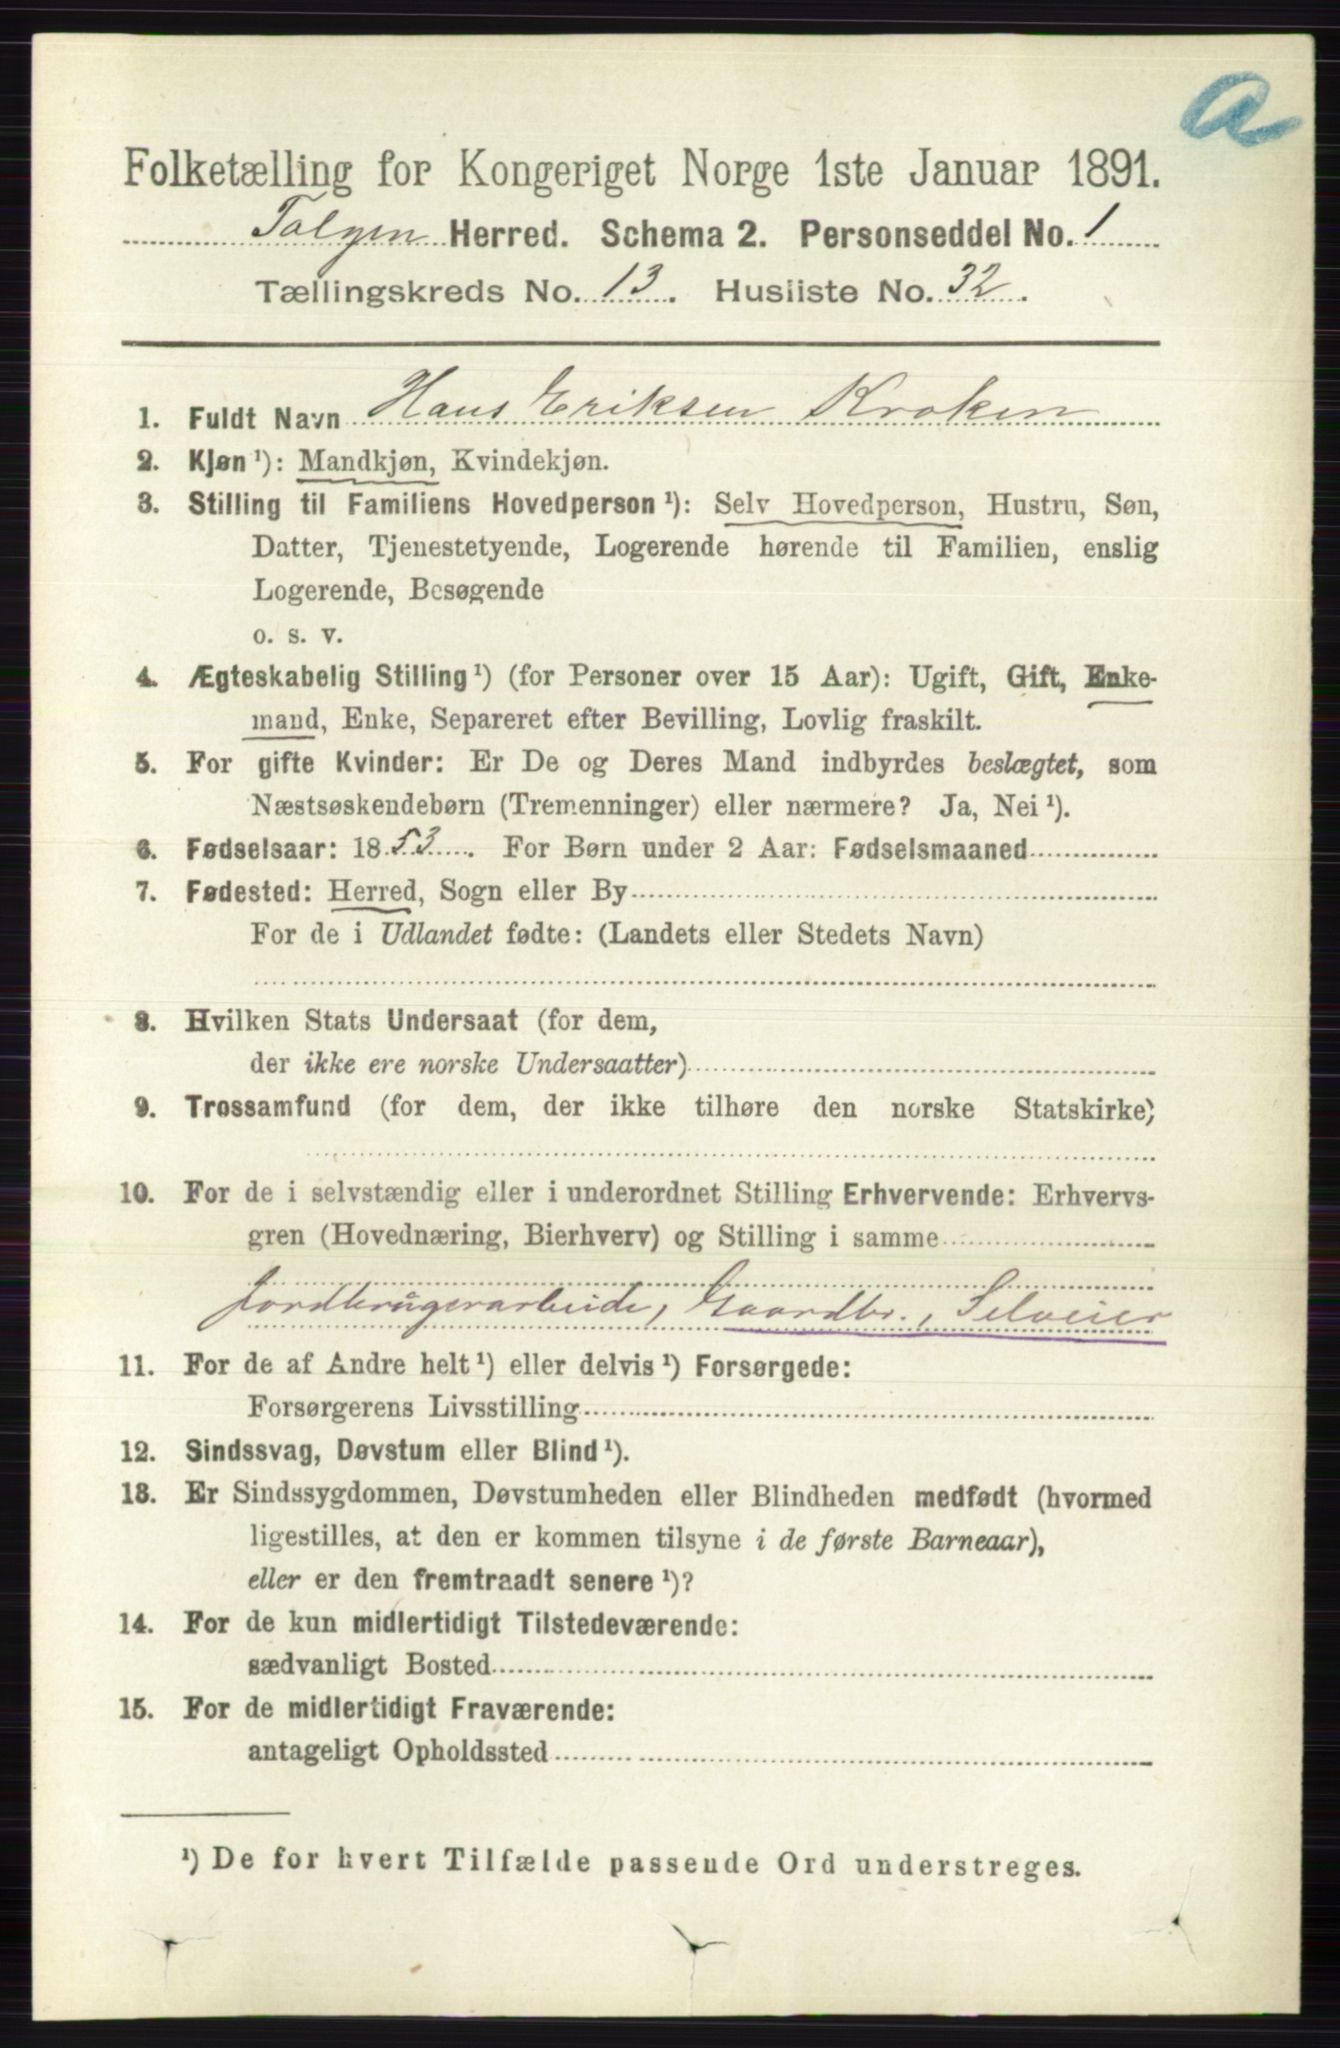 a
Folketælling for Kongeriget Norge 1ste Januar 1891.
Tolgen Herred. Schema 2. Personseddel No. 1
Tællingskreds No. 13. Husliste No. 32.
1. Fuldt Navn Hans Eriksen Kroken
2. Kjøn ¹): Mandkjøn, Kvindekjøn.
3. Stilling til Familiens Hovedperson ¹): Selv Hovedperson, Hustru, Søn,
Datter, Tjenestetyende, Logerende hørende til Familien, enslig
Logerende, Besøgende
o. s. v.
4. Ægteskabelig Stilling ¹) (for Personer over 15 Aar): Ugift, Gift, Enke-
mand, Enke, Separeret efter Bevilling, Lovlig fraskilt.
5. For gifte Kvinder: Er De og Deres Mand indbyrdes beslægtet, som
Næstsøskendebørn (Tremenninger) eller nærmere? Ja, Nei ¹).
6. Fødselsaar: 1853. For Børn under 2 Aar: Fødselsmaaned
7. Fødested: Herred, Sogn eller By
For de i Udlandet fødte: (Landets eller Stedets Navn)
8. Hvilken Stats Undersaat (for dem,
der ikke ere norske Undersaatter)
9. Trossamfund (for dem, der ikke tilhøre den norske Statskirke)
10. For de i selvstændig eller i underordnet Stilling Erhvervende: Erhvervs-
gren (Hovednæring, Bierhverv) og Stilling i samme
Jordbrugerarbeide, Gaardbr., Selveier
11. For de af Andre helt ¹) eller delvis ¹) Forsørgede:
Forsørgerens Livsstilling
12. Sindssvag, Døvstum eller Blind ¹).
13. Er Sindssygdommen, Døvstumheden eller Blindheden medfødt (hvormed
ligestilles, at den er kommen tilsyne i de første Barneaar),
eller er den fremtraadt senere ¹)?
14. For de kun midlertidigt Tilstedeværende:
sædvanligt Bosted
15. For de midlertidigt Fraværende:
antageligt Opholdssted
¹) De for hvert Tilfælde passende Ord understreges.